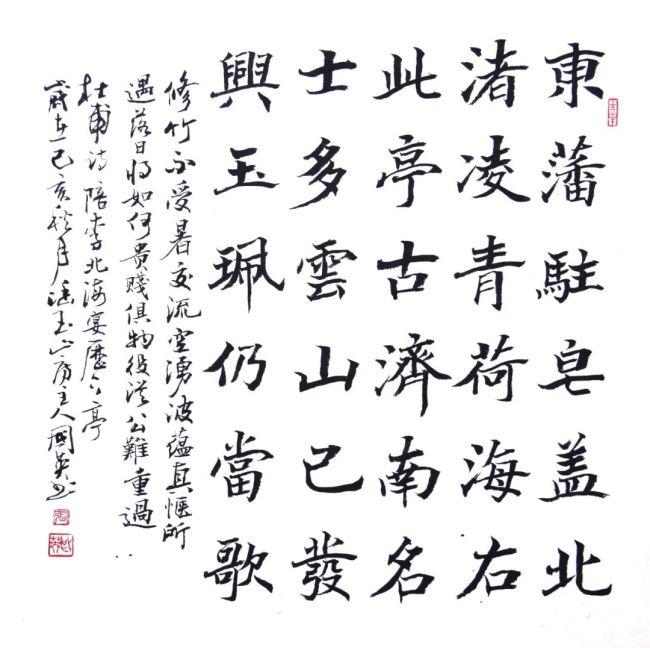 東藩駐皂盖北
渚凌青荷海右
此亭古濟南名
士多雲山已發
興玉珮仍當歌
修竹不受暑交流空湧波蕴真惬所
遇落日将如何贵賤俱物役従公難重過
杜甫诗陪李北海宴歷下亭
歲在己亥秋月玉山房主人國英书